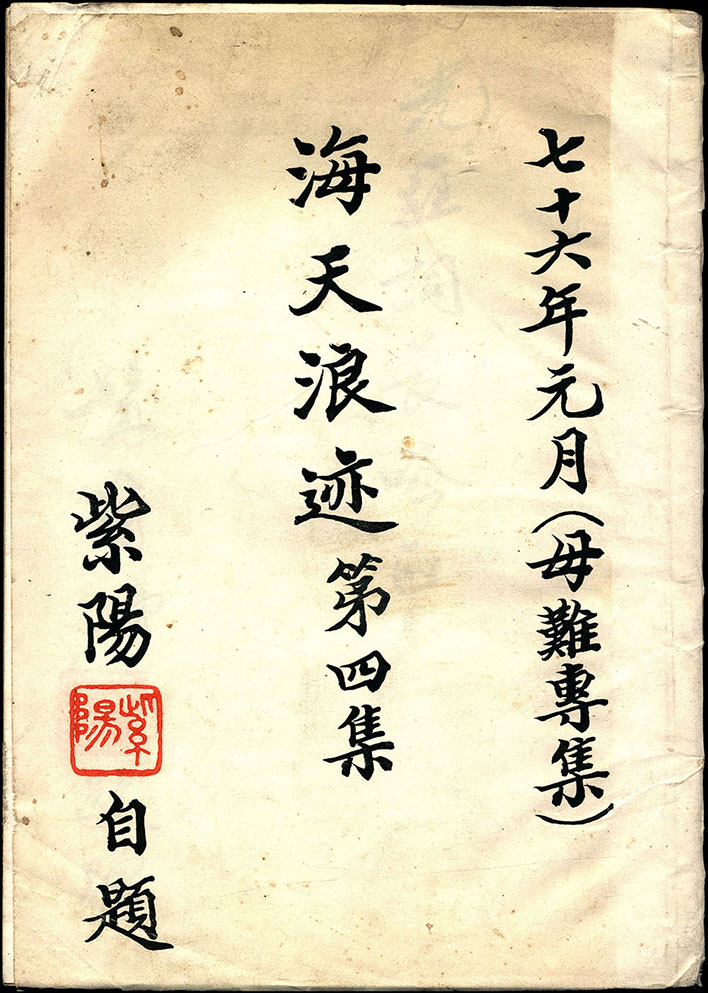 七十六年元月（毋難專集）
海天浪迹第四集
紫陽
紫陽
自題